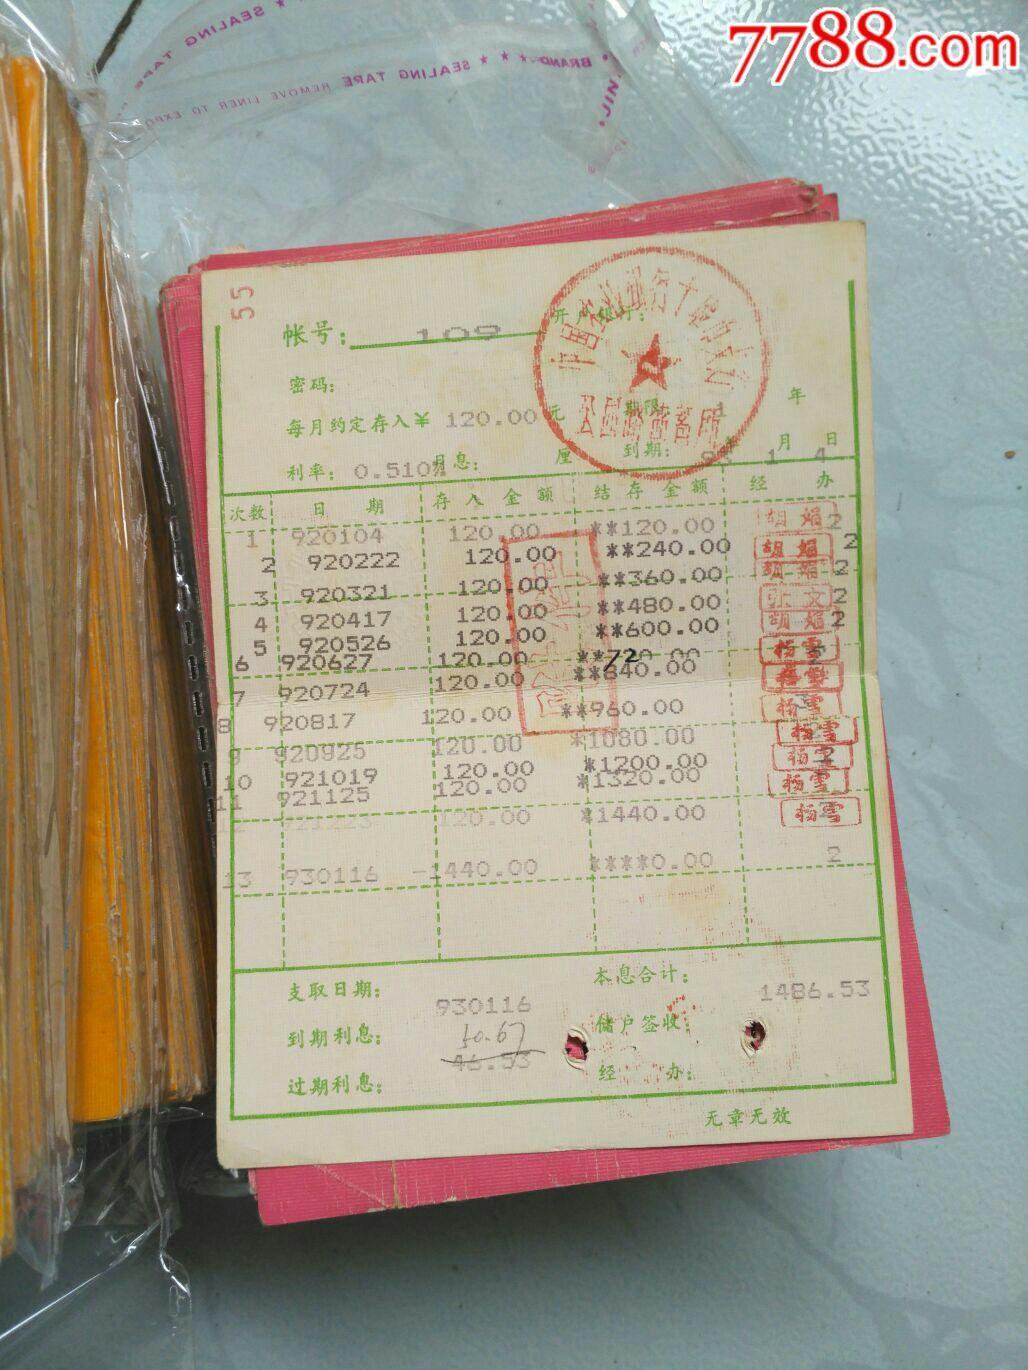 7788.com
SEALING TAPE ★ ★ ★ BRAND
SEALING TAPE REMOVE LINER TO EXPO
55
帐号: 109 开户银行:
密码:
每月约定存入¥ 120.00 元 期限: 1 年
利率: 0.510% 月息: 厘 到期: 93 年 1 月 4 日
次数 日期 存入金额 结存金额 经办
1 920104 120.00 **120.00 胡娟 2
2 920222 120.00 **240.00 胡娟 2
3 920321 120.00 **360.00 胡娟 2
4 920417 120.00 **480.00 张文 2
5 920526 120.00 **600.00 胡娟 2
6 920627 120.00 **720.00 杨雪
7 920724 120.00 **840.00 杨雪
8 920817 120.00 **960.00 杨雪
9 920925 120.00 *1080.00 杨雪
10 921019 120.00 *1200.00 杨雪
11 921125 120.00 *1320.00 杨雪
12 921223 120.00 *1440.00 杨雪
13 930116 -1440.00 ****0.00 2
支取日期: 930116 本息合计: 1486.53
到期利息: 50.67 储户签收:
46.53
过期利息: 经办:
无章无效